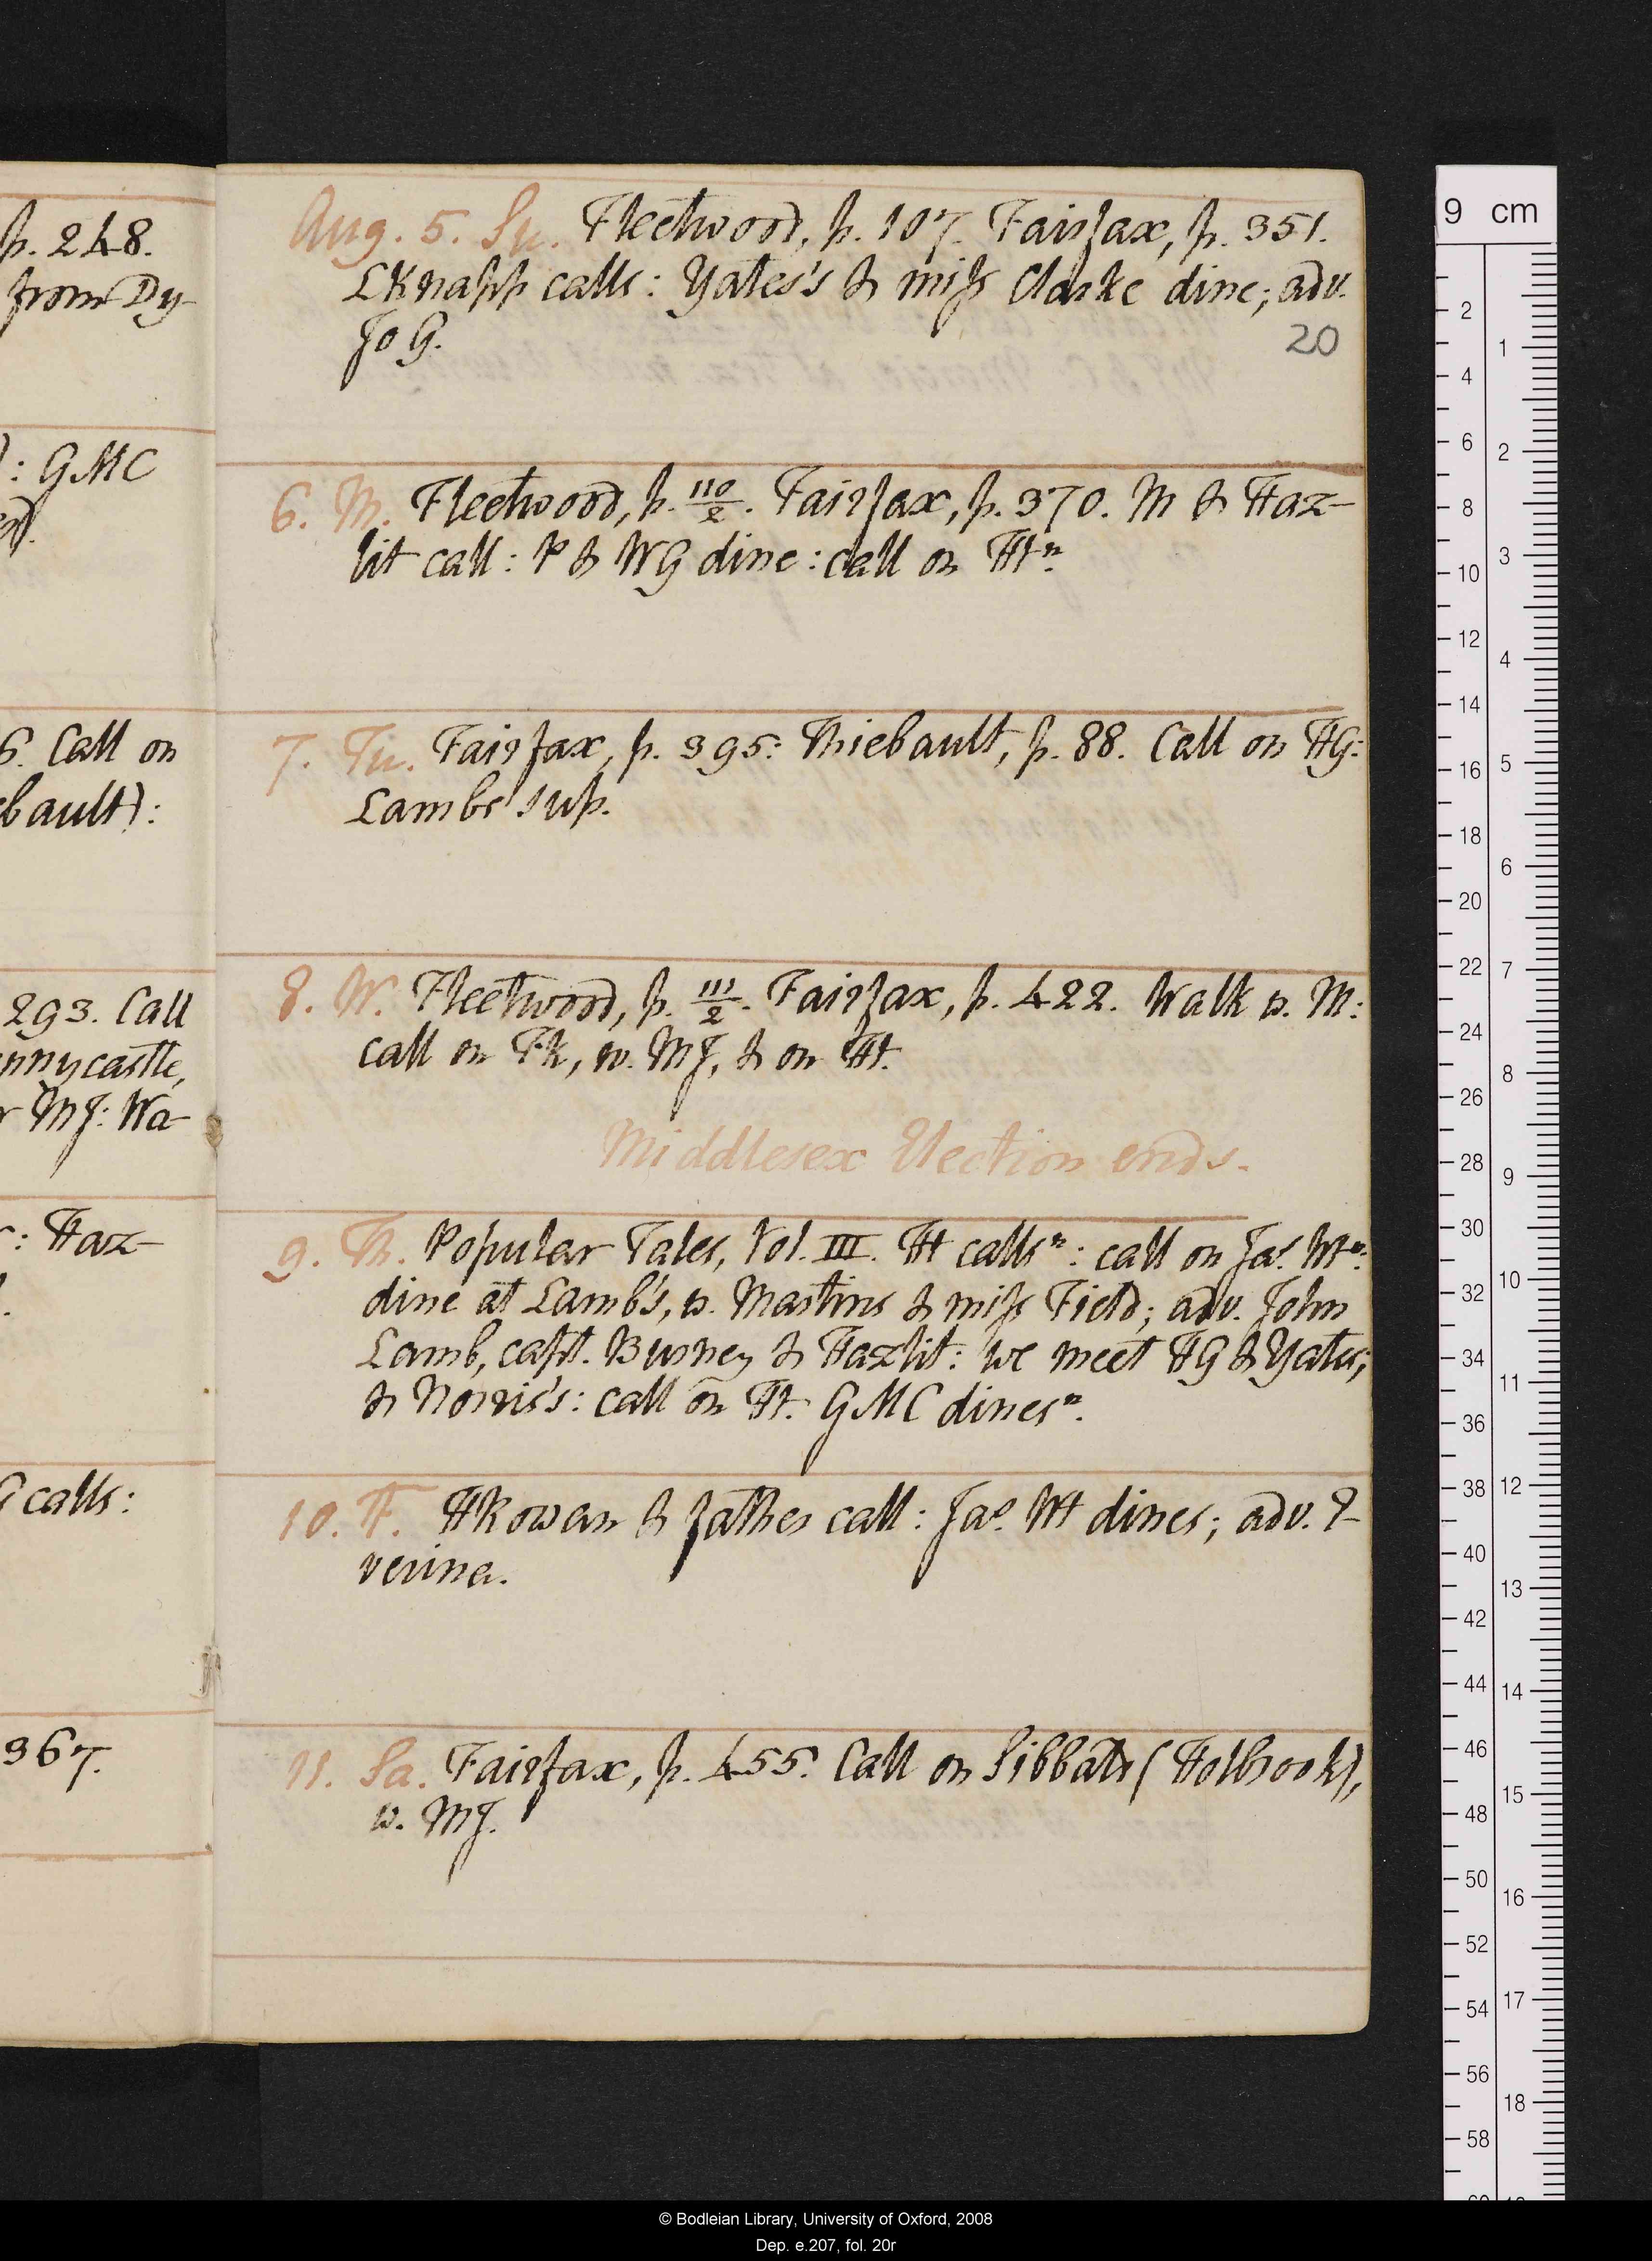 p. 248.
from Dy-
: GMC
6. Call on
ebault):
293. Call
nnycastle,
r MJ: Wa-
: Haz-
G calls:
367.
Aug. 5. Su. Fleetwood, p. 107. Fairfax, p. 351.
LKnapp calls: Yates's & miss Clarke dine; adv.
Jo G.
20
6. M. Fleetwood, p. 110/2. Fairfax, p. 370. M & Haz-
lit call: P & WG dine: call on Ht n.
7. Tu. Fairfax, p. 395: Thiebault, p. 88. Call on HG:
Lambs sup.
8. W. Fleetwood, p. 111/2. Fairfax, p. 422. Walk w. M:
call on Fk, w. MJ, & on Ht.
Middlesex Election ends.
9. Th. Popular Tales, Vol. III. Ht calls n: call on Jas. Wt n:
dine at Lamb's, w. Martins & miss Field; adv. John
Lamb, capt. Burney & Hazlit: we meet HG & Yates;
& Norris's: call on Ht. GMC dines n.
10. F. HRowan & father call: Jas. Wt dines; adv. E-
verina.
11. Sa. Fairfax, p. 455. Call on Sibbald (Holbrook),
w. MJ.
9 cm
2
4
6
8
10
12
14
16
18
20
22
24
26
28
30
32
34
36
38
40
42
44
46
48
50
52
54
56
58
1
2
3
4
5
6
7
8
9
10
11
12
13
14
15
16
17
18
© Bodleian Library, University of Oxford, 2008
Dep. e.207, fol. 20r